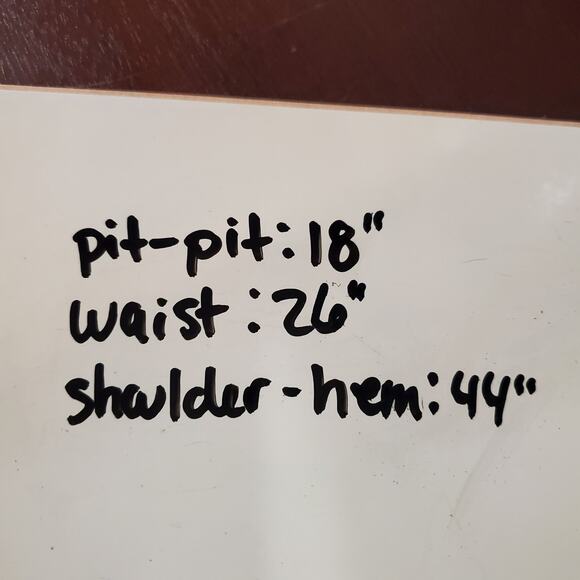 pit-pit: 18"
waist: 26"
shoulder-hem: 44"